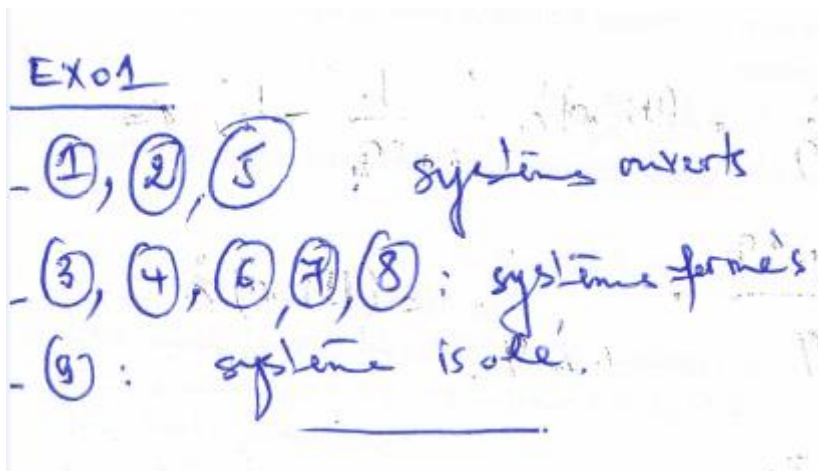 EX01
- ①, ②, ⑤ : systèmes ouverts
- ③, ④, ⑥, ⑦, ⑧ : systèmes fermés
- ⑨ : système isolé.